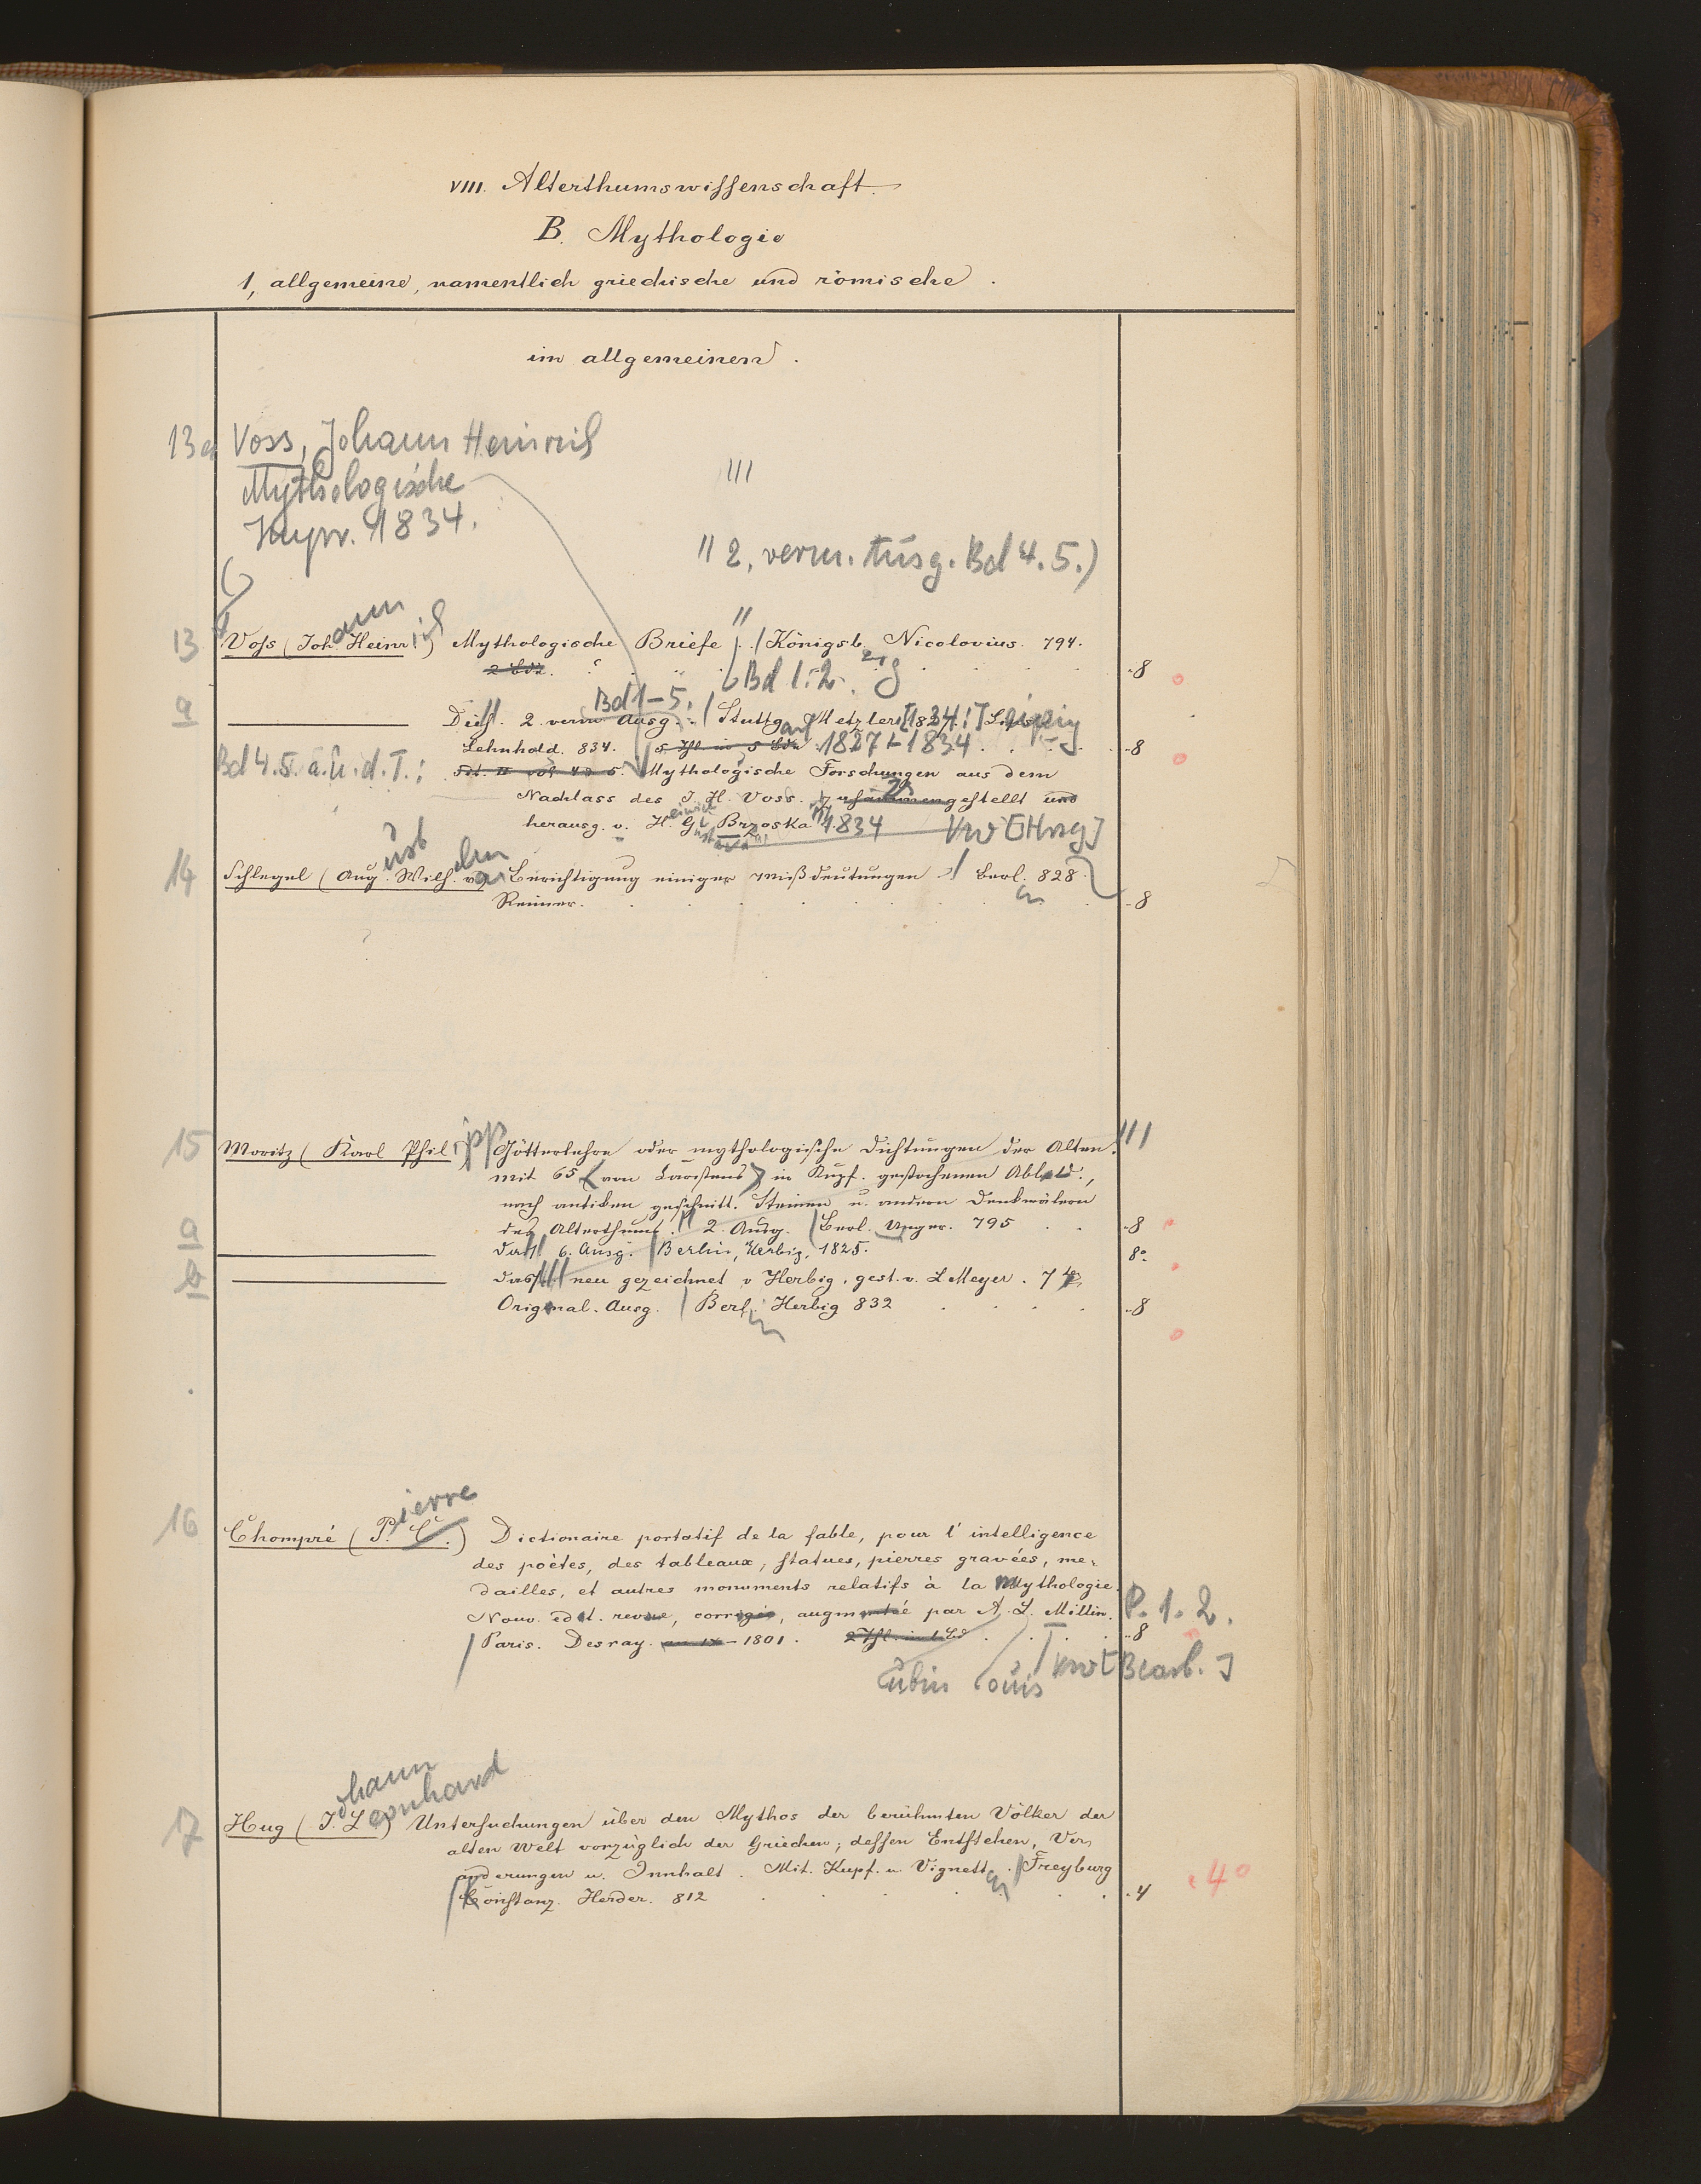 VIII. Alterthumswissenschaft.
B. Mythologie
1, allgemeine, namentlich griechische und römische.
im allgemeinen.
13a Voss, Johann Heinrich
Mythologische
1834.
2, verm. Ausg. Bd 4. 5.)
13 Voss (Johann Heinrich) Mythologische Briefe. Königsb. Nicolovius. 794.
2 Bde. Bd 1.-2. 8
a Dies. 2. verm Ausg. Bd 1-5. Stuttgart Metzler [1834:] Leipzig
Lehnhold. 834. 5 Thl in 5 Bde 1827-1834. 8
Bd 4.5. a. u. d. T.: Mythologische Forschungen aus dem
Nachlass des J. H. Voss. Zusammengestellt und
herausg. v. H. G. Brzoska 1834 Vw [Hrsg]
14 Schlegel (August Wilhelm v.) Berichtigung einiger Mißdeutungen. Berl. 828
Reimer. 8
15 Moritz (Karl Philipp) Götterlehre oder mythologische Dichtungen der Alten.
mit 65 (von Carstens) in Kupf. gestochenen Abbild.,
nach antiken geschnitt. Steinen u. andern Denkmälern
des Alterthums. 2. Ausg. Berl. Unger. 795 8
a das. 6. Ausg. Berlin, Herbig, 1825. 8°
b dass. neu gezeichnet v Herbig, gest. v. L Meyer. 7te
Original. Ausg. Berlin Herbig 832 8
16 Chompré (Pierre C.) Dictionaire portatif de la fable, pour l'intelligence
des poètes, des tableaux, statues, pierres gravées, me,
dailles, et autres monuments relatifs à la Mythologie.
Nouv. edit. revue, corrigée, augmentée par A. L. Millin. P. 1. 2.
Paris. Desray. an IX - 1801. 2 Thl. in 1 Bd 8
Aubin Louis Vw [Bearb.]
17 Hug (Johann Leonhard) Untersuchungen über den Mythos der berühmten Völker der
alten Welt vorzüglich der Griechen; dessen Entstehen, Ver,
änderungen u. Innhalt. Mit. Kupf. u Vignetten. Freyburg
Constanz. Herder. 812 4 4°